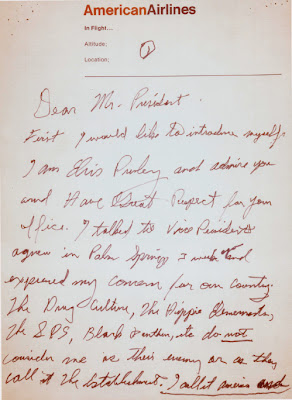 AmericanAirlines
In Flight...
Altitude;
Location;
1
Dear Mr. President.
First I would like to introduce myself.
I am Elvis Presley and admire you
and Have Great Respect for your
office. I talked to Vice President
Agnew in Palm Springs 3 weeks and
expressed my concern for our country.
The Drug Culture, The Hippie Elements,
The SDS, Black Panthers, etc do not
consider me as their enemy or as they
call it The Establishment. I call it America and